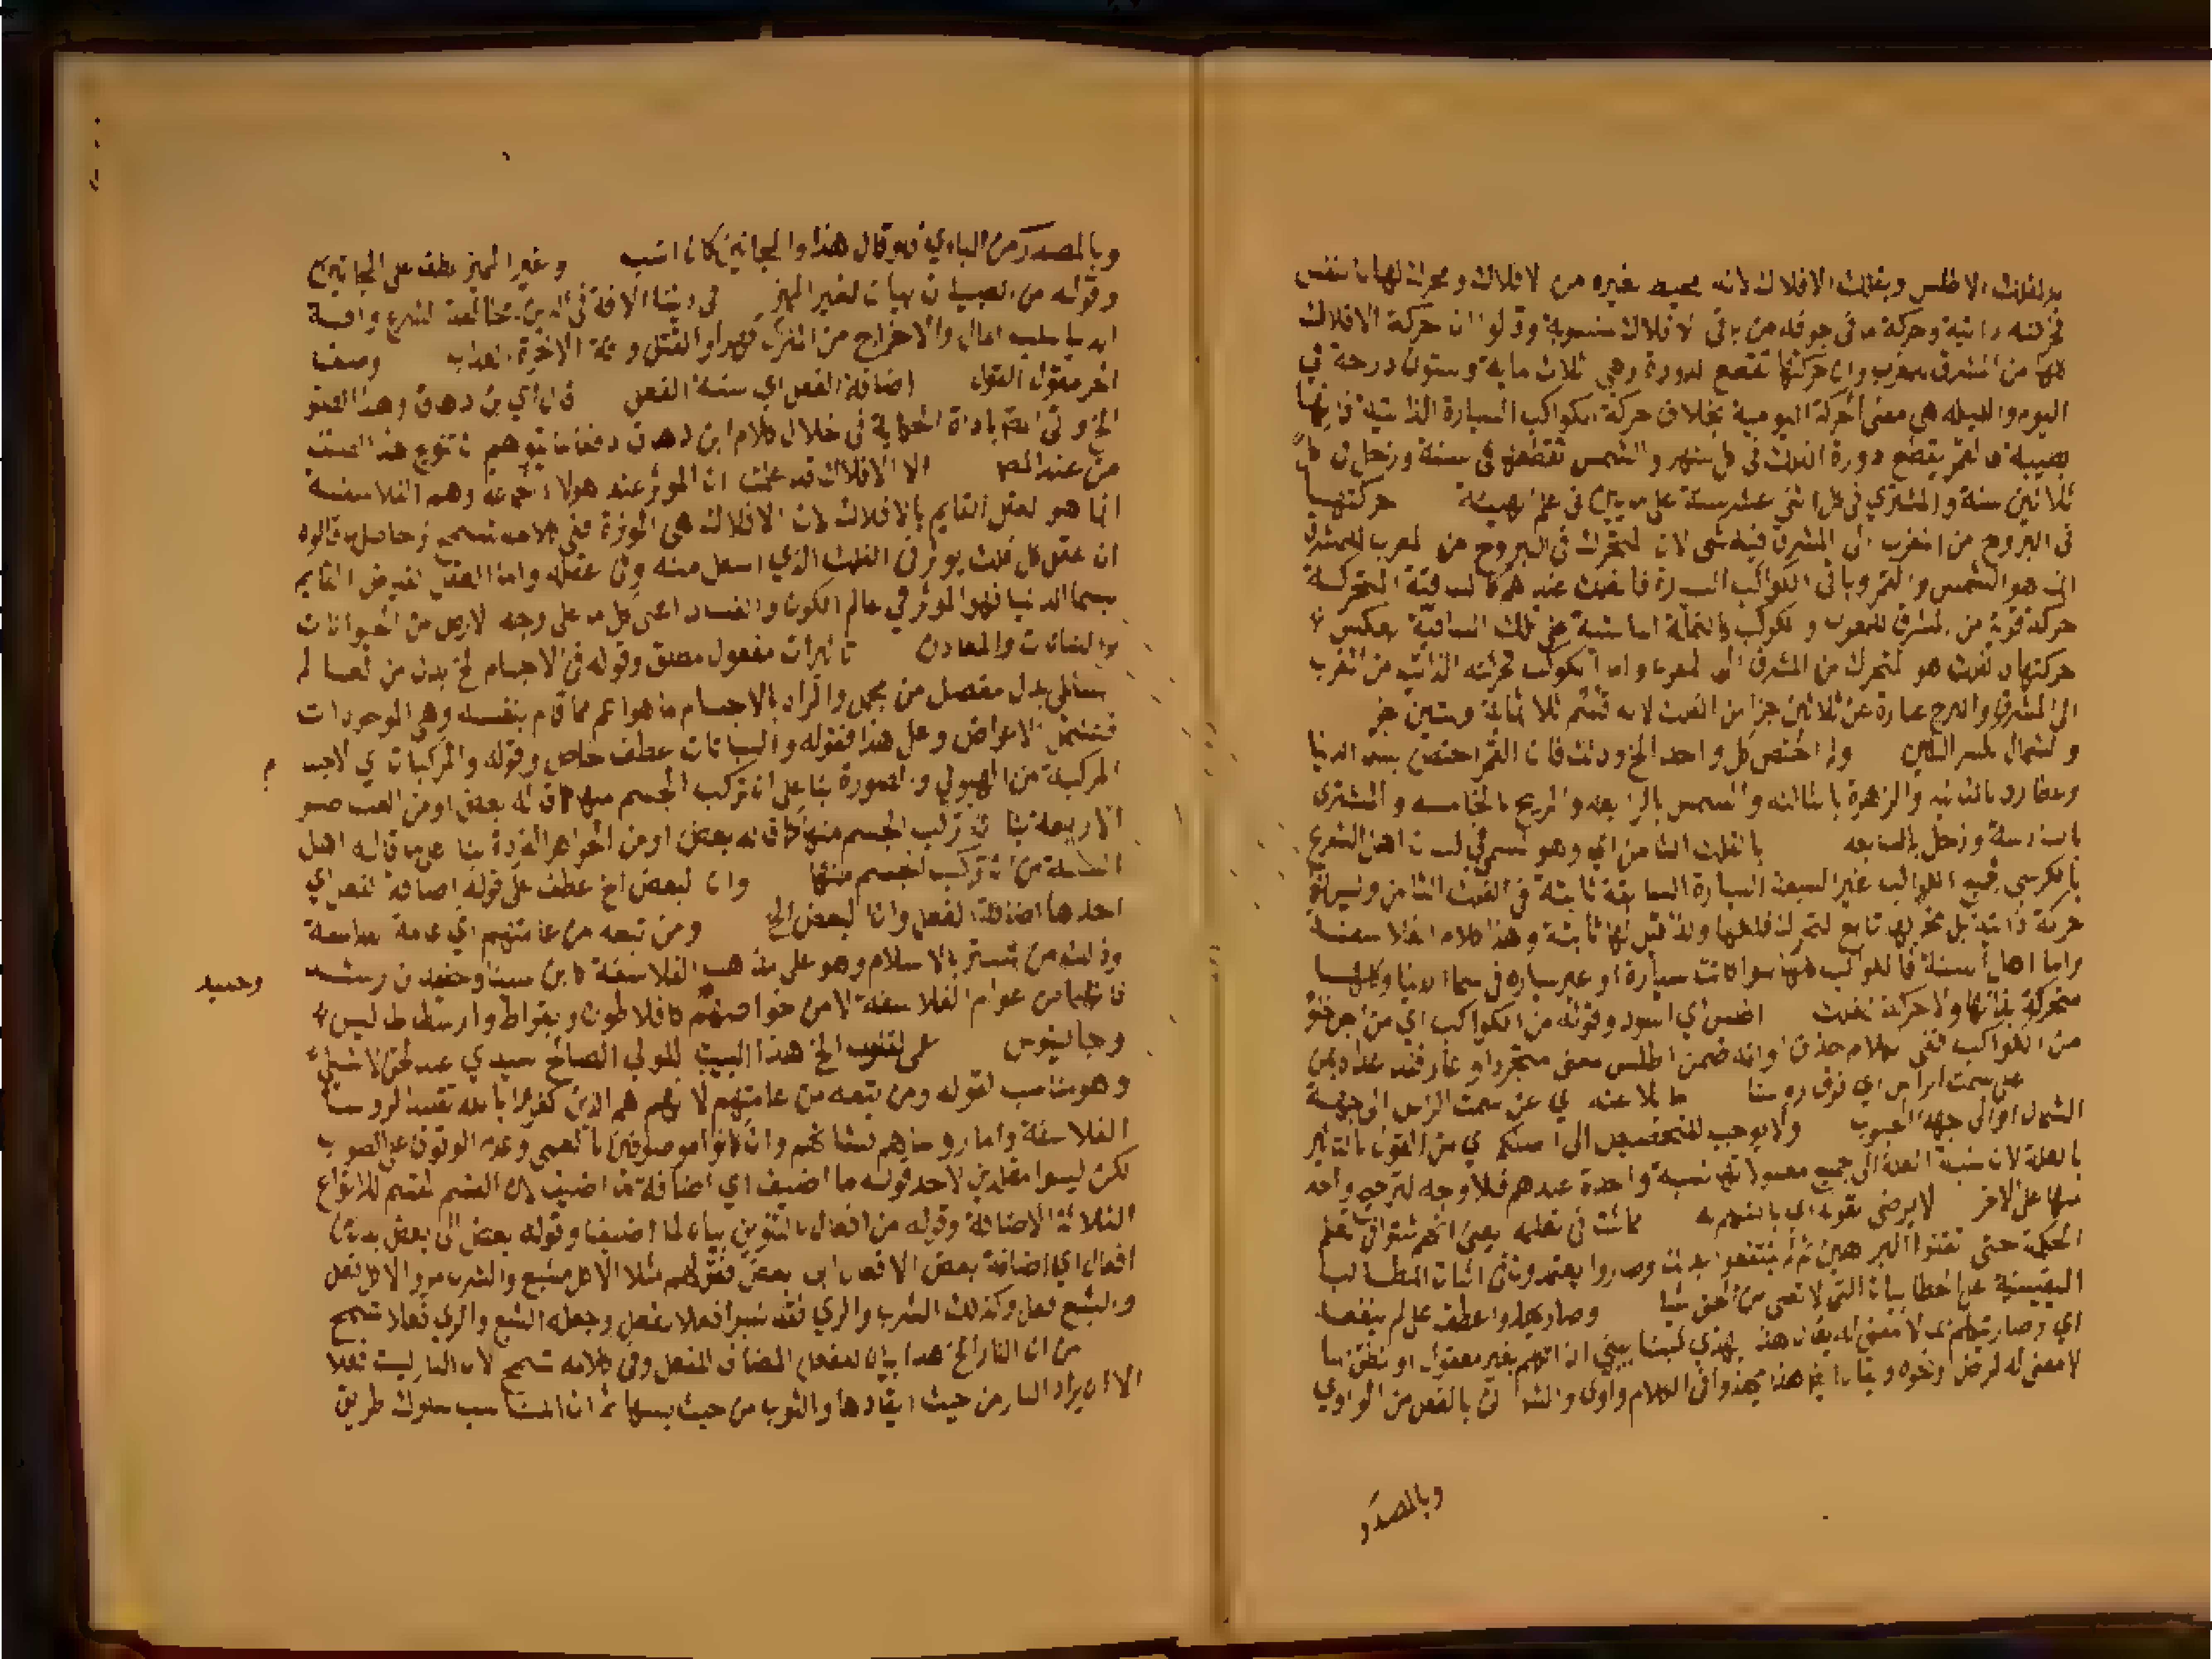 بالفلك الاطلس وبفلك الافلاك لانه محيط بغيره من الافلاك ومحرك لها بالنفس
فحركته ذاتية وحركة ما في جوفه من باقي الافلاك منسوبة وقالوا ان حركة الافلاك
كلها من المشرق للمغرب وان حركتها تقطع الدورة وهي ثلاث ماية وستون درجة في
اليوم والليله هي معنى الحركة اليومية بخلاف حركة الكواكب السيارة الذاتية فانها
فالقمر يقطع دورة الفلك في كل شهر والشمس تقطعها في سنة وزحل في كل
ثلاثين سنة والمشتري في كل اثني عشر سنة على ما بين في علم الهيئة حركتها
في البروج من المغرب الى المشرق فيه شي لان المتحرك في البروج من المغرب للمشرق
انما هو الشمس والقمر وباقي الكواكب السيارة فالفلك عندهم كالساقية المتحركة
حركة قوية من المشرق للمغرب والكوكب كالنملة الماشية على تلك الساقية بعكس
حركتها فالفلك هو المتحرك من المشرق الى المغرب واما الكوكب فحركته الذاتية من المغرب
الى المشرق والبرج عبارة عن ثلاثين جزأ من الفلك لانه قسم ثلاثمائة وستين جز
والشمال بكسر الشين ولم اختص كل واحد الخ وذلك فان القمر اختص بسما الدنيا
وعطارد بالثانيه والزهرة بالثالثه والشمس بالرابعه والمريخ بالخامسه والمشتري
بالسادسة وزحل بالسابعه بالفلك الثامن اي وهو المسمى في لسان اهل الشرع
بالكرسي فجميع الكواكب غير السبعة السيارة السابقة ثابتة في الفلك الثامن وليس لها
حركة ذاتية بل تحركها تابع لتحرك فلكها ولذا قيل لها ثابتة وهذا كلام الفلاسفة
واما اهل السنة فالكواكب كلها سوا كانت سيارة او غير سيارة في سما الدنيا وكلها
متحركة بذاتها ولا حركة للفلك اطلس اي اسود وقوله من الكواكب اي من اجل خلو
من الكواكب ففي الكلام حذف او انه ضمن اطلس معنى متجرد او عار فعداه بمن
على سمت الراس اي فوق روسنا مايلا عنه اي عن سمت الراس الى جهة
الشمال او الى جهة الجنوب ولا يوجب للتخصيص الى اصلكم اي من القول بالتاثير
بالعلة لان نسبة العلة الى جميع معلولاتها نسبة واحدة عندهم فلا وجه لترجيح واحد
منها على الاخر لا يرضى بقوله اي بالتهم به مما انت في تعليمه يعني انهم تعلم
الحكمة حتى تقننوا البراهين ثم لم ينتفعوا بذلك وصاروا يعتمدون في اثبات المطالب
اليقينية على الخطابيات التي لا تغني من الحق شيا وصار عطف على لم ينتفعوا
لا معنى له لمرض او نحوه ويقال هذا يهذو في الكلام واوي والشا بالفعل من الواوي
وبالمصدر
وبالمصدر من الياوي فلو قال هذا والمجانين كان انسب وغير المميز عطف على المجانين
وقوله من الصبيان بيان لغير المميز في ديننا الافة في الدين مخالفة الشرع وافة
الدنيا سلب المال والاخراج من المنزل قهرا والقتل وافة الاخرة العذاب وصف
اخر مقول القول اضافة الفعل اي سنة الفعل قال اي بن دهاق وهذا الصنف
الخ وفي اتم باداة الحكاية في خلال كلام ابن دهاق دفعا لما يتوهم ان تنويع هذا الصنف
من عند المصـ الا الافلاك قد علمت ان الموثر عند هولا الجماعه وهم الفلاسفة
انما هو العقل القايم بالافلاك لان الافلاك هي الموثرة ففي كلامه تسمح وحاصل ما قالوه
ان عقل كل فلك يوثر في الفلك الذي اسفل منه وفي عقله واما العقل الفياض القايم
بسما الدنيا فهو الموثر في عالم الكون والفساد اعني كل ما على وجه الارض من الحيوانات
والنباتات والمعادن تاثيرات مفعول مطلق وقوله في الاجسام الخ بدل من العالم
السفلي بدل مفصل من مجمل والمراد بالاجسام ما هو اعم مما قام بنفسه وهي الموجودات
فتشمل الاعراض وعلى هذا فقوله والنباتات عطف خاص وقوله والمركبات اي الاجسا م
المركبة من الهيولي والصورة بنا على ان تركب الجسم منها كما قاله بعض او من العناصر
الاربعة بنا على تركب الجسم منها كما قاله بعض او من الجواهر الفردة بنا على ما قاله اهل
السنة من ان تركب الجسم منها وان لبعض الخ عطف على قوله اضافة الفعل اي
احدها اضافة الفعل وانا لبعض الخ ومن تبعه من عامتهم اي عامة الفلاسفة
وذلك من تستر بالاسلام وهو على مذهب الفلاسفة كابن سينا وحفيد بن رشد
وحفيد
فانهما من عوام الفلاسفة لا من خواصهم كافلاطون وبقراط وارسطاطاليس
وجالينوس على القلوب الخ هذا البيت للولي الصالح سيدي عبد الحق الاشبيلي
وهو مناسب لقوله ومن تبعه من عامتهم لانهم هم الذين كفروا بالله تقليد الروسا
الفلاسفة واما روساهم وان كانوا موصوفين بالعمى وعدم الوقوف على الصواب
لكن ليسوا مقلدين لاحد قوله ما اضيف اي اضافة ما اضيف لان القسم المقسم للانواع
الثلاثة الاضافة وقوله من افعال بالتنوين بيان لما اضيف وقوله بعض الى بعض بدل من
افعال اي اضافة بعض الافعال الى بعض فقولهم مثلا الاكل مشبع والشرب مرو الاكل فعل
والشبع فعل وكذلك الشرب والري فقد نسبوا فعلا لفعل وجعله الشبع والري فعلا تسمح
من ان النار الخ هذا بيان للفعل المضاف المنفعل وفي كلامه تسمح لان النار ليست فعلا
الا ان يراد النار من حيث ايقادها والثوب من حيث لبسها ثم ان المناسب سلوك طريق